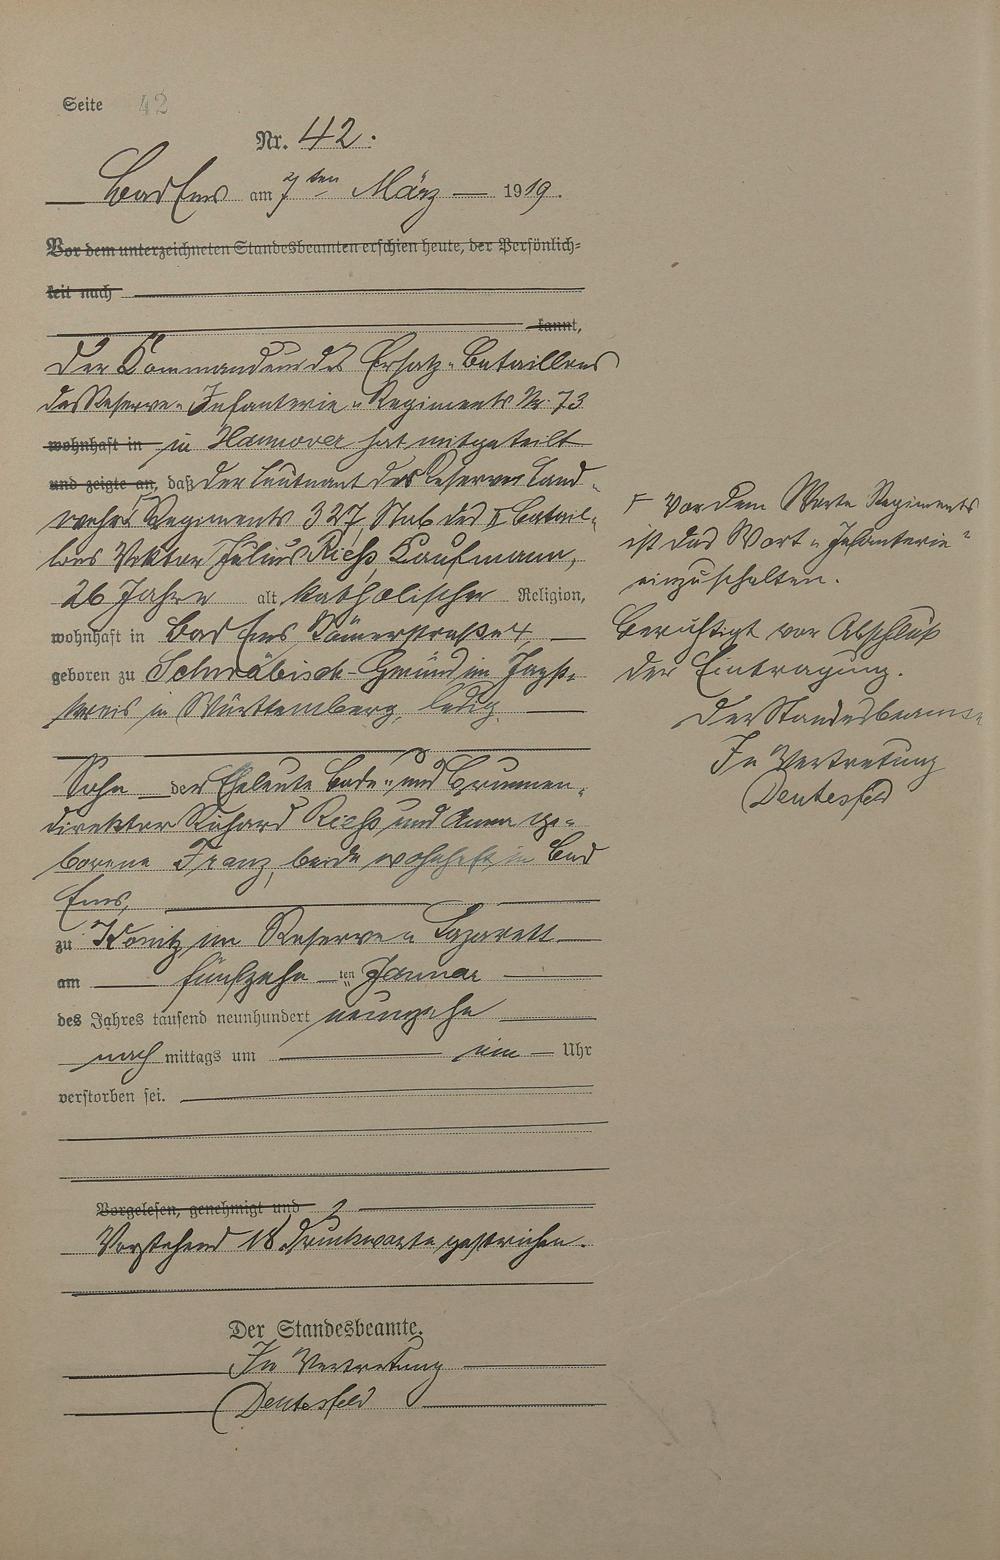 Seite 42
Nr. 42.
Bad Ems am 7ten März 1919.
Vor dem unterzeichneten Standesbeamten erschien heute, der Persönlich-
keit nach
kannt,
Der Commandeur des Ersatz-Bataillons
des Reserve-Infanterie-Regiments Nr. 73
wohnhaft in in Hannover hat mitgeteilt
und zeigte an, daß der Leutnant der Reserve Land-
wehr Γ Regiments 327 Stab des II Batail-
lons Viktor Julius Rieß Kaufmann,
26 Jahre alt katholischer Religion,
wohnhaft in Bad Ems Römerstraße 4,
geboren zu Schwäbisch-Gmünd im Jagst-
kreis in Württemberg, ledig
Sohn der Eheleute Bade- und Brunnen-
direktor Richard Rieß und Anna ge-
borene Franz, beide wohnhaft in Bad
Ems,
zu Konitz im Reserve-Lazarett
am fünfzehnten Januar
des Jahres tausend neunhundert neunzehn
nachmittags um ein Uhr
verstorben sei.
Vorgelesen, genehmigt und
Vorstehend 18 Druckworte gestrichen.
Der Standesbeamte.
In Vertretung
Deutesfeld
Γ Vor dem Worte Regiments
ist das Wort "Infanterie"
einzuschalten.
Berichtigt vor Abschluß
der Eintragung.
Der Standesbeamte
In Vertretung
Deutesfeld